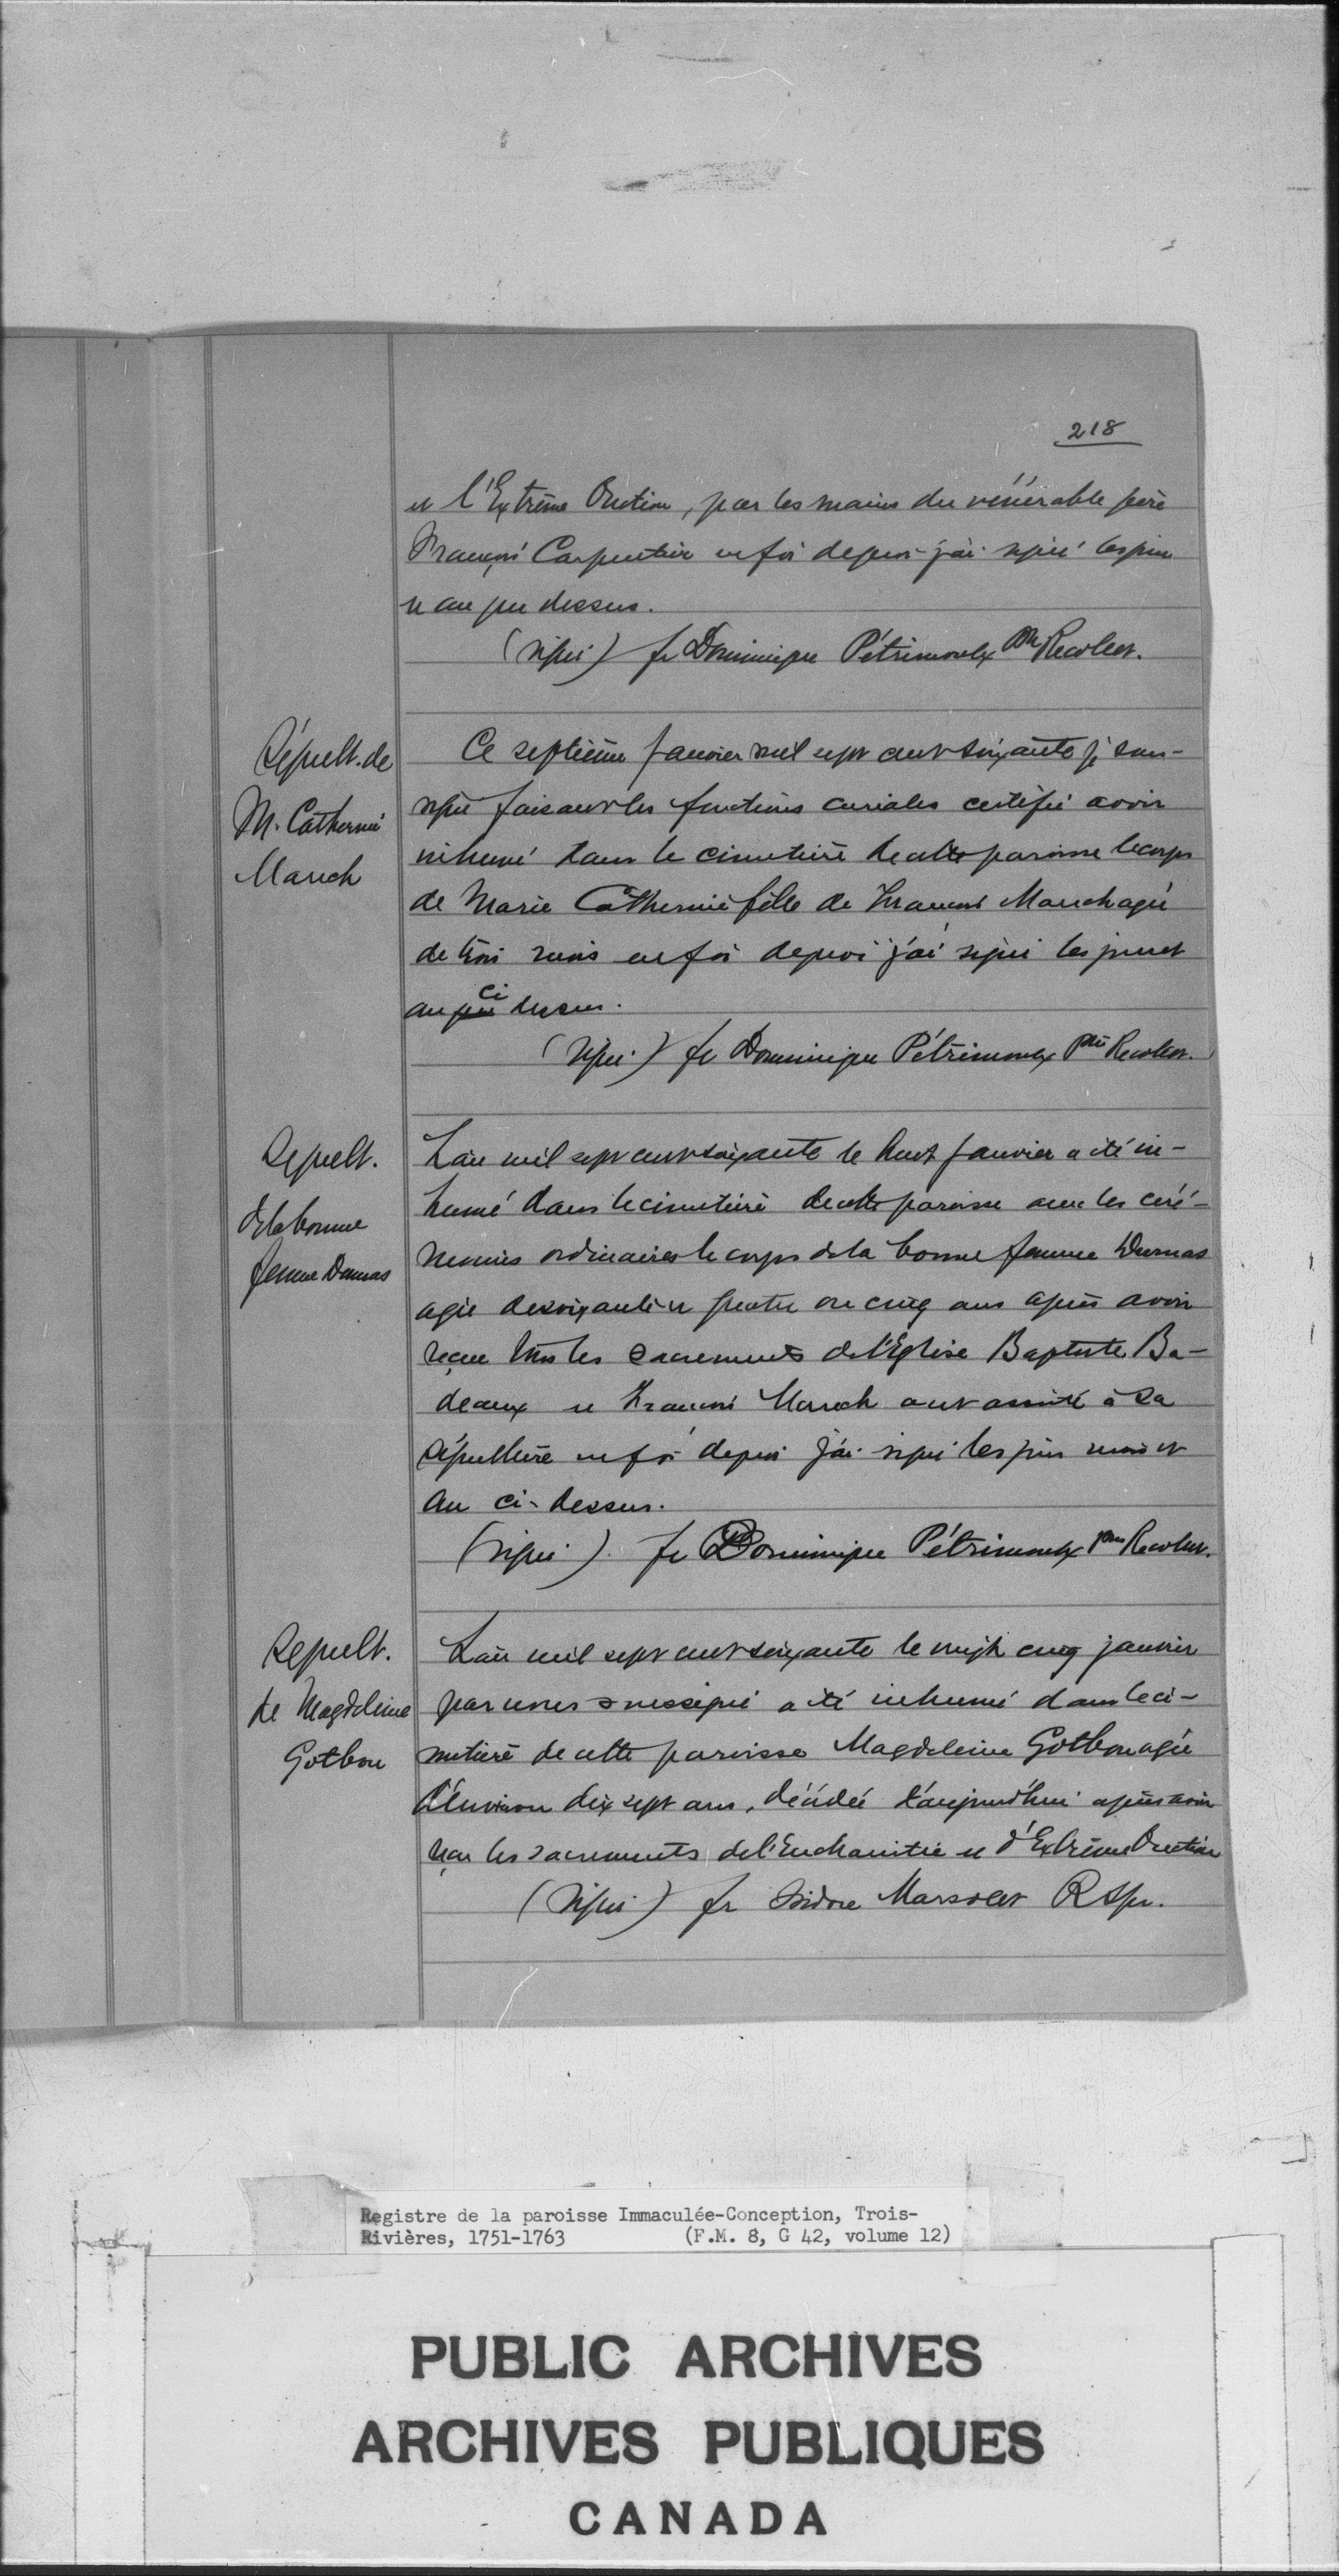 218
et l'Extrême Onction, par les mains du vénérable père
François Carpentier en foi de quoi j'ai signé les jour
et an que dessus.
(signé) fr Dominique Pétrimoulx Ptre Recollet.
Sépult. de
M. Catherine
March
Ce septième janvier mil sept cent soixante je sous-
signé faisant les fonctions curiales certifie avoir
inhumé dans le cimetière de cette paroisse le corps
de Marie Catherine fille de François March agée
de trois mois en foi de quoi j'ai signé les jour et
an que ci dessus.
(signé) fr Dominique Pétrimoulx Ptre Recollet.
Sepult.
de la bonne
femme Dumas
L'an mil sept cent soixante le huit janvier a été in-
humé dans le cimetière de cette paroisse avec les céré-
monies ordinaires le corps de la bonne femme Dumas
agée de soixante et quatre ou cinq ans après avoir
reçue tous les sacrements de l'Eglise Baptiste Ba-
deaux et François March ont assisté à sa
sépulture en foi de quoi j'ai signé les jour mois et
an ci-dessus.
(signé) fr Dominique Pétrimoulx Recollet.
Sepult.
de Magdeleine
Gotbou
L'an mil sept cent soixante le vingt cinq janvier
par nous soussigné a été inhumé dans le ci-
metière de cette paroisse Magdeleine Gotbou agée
d'environ dix sept ans, décédée d'aujourd'hui après avoir
reçu les sacrements de l'Eucharistie et d'Extrême Onction
(signé) fr Isidore Marsolet
Registre de la paroisse Immaculée-Conception, Trois-
Rivières, 1751-1763 (F.M. 8, G 42, volume 12)
PUBLIC ARCHIVES
ARCHIVES PUBLIQUES
CANADA